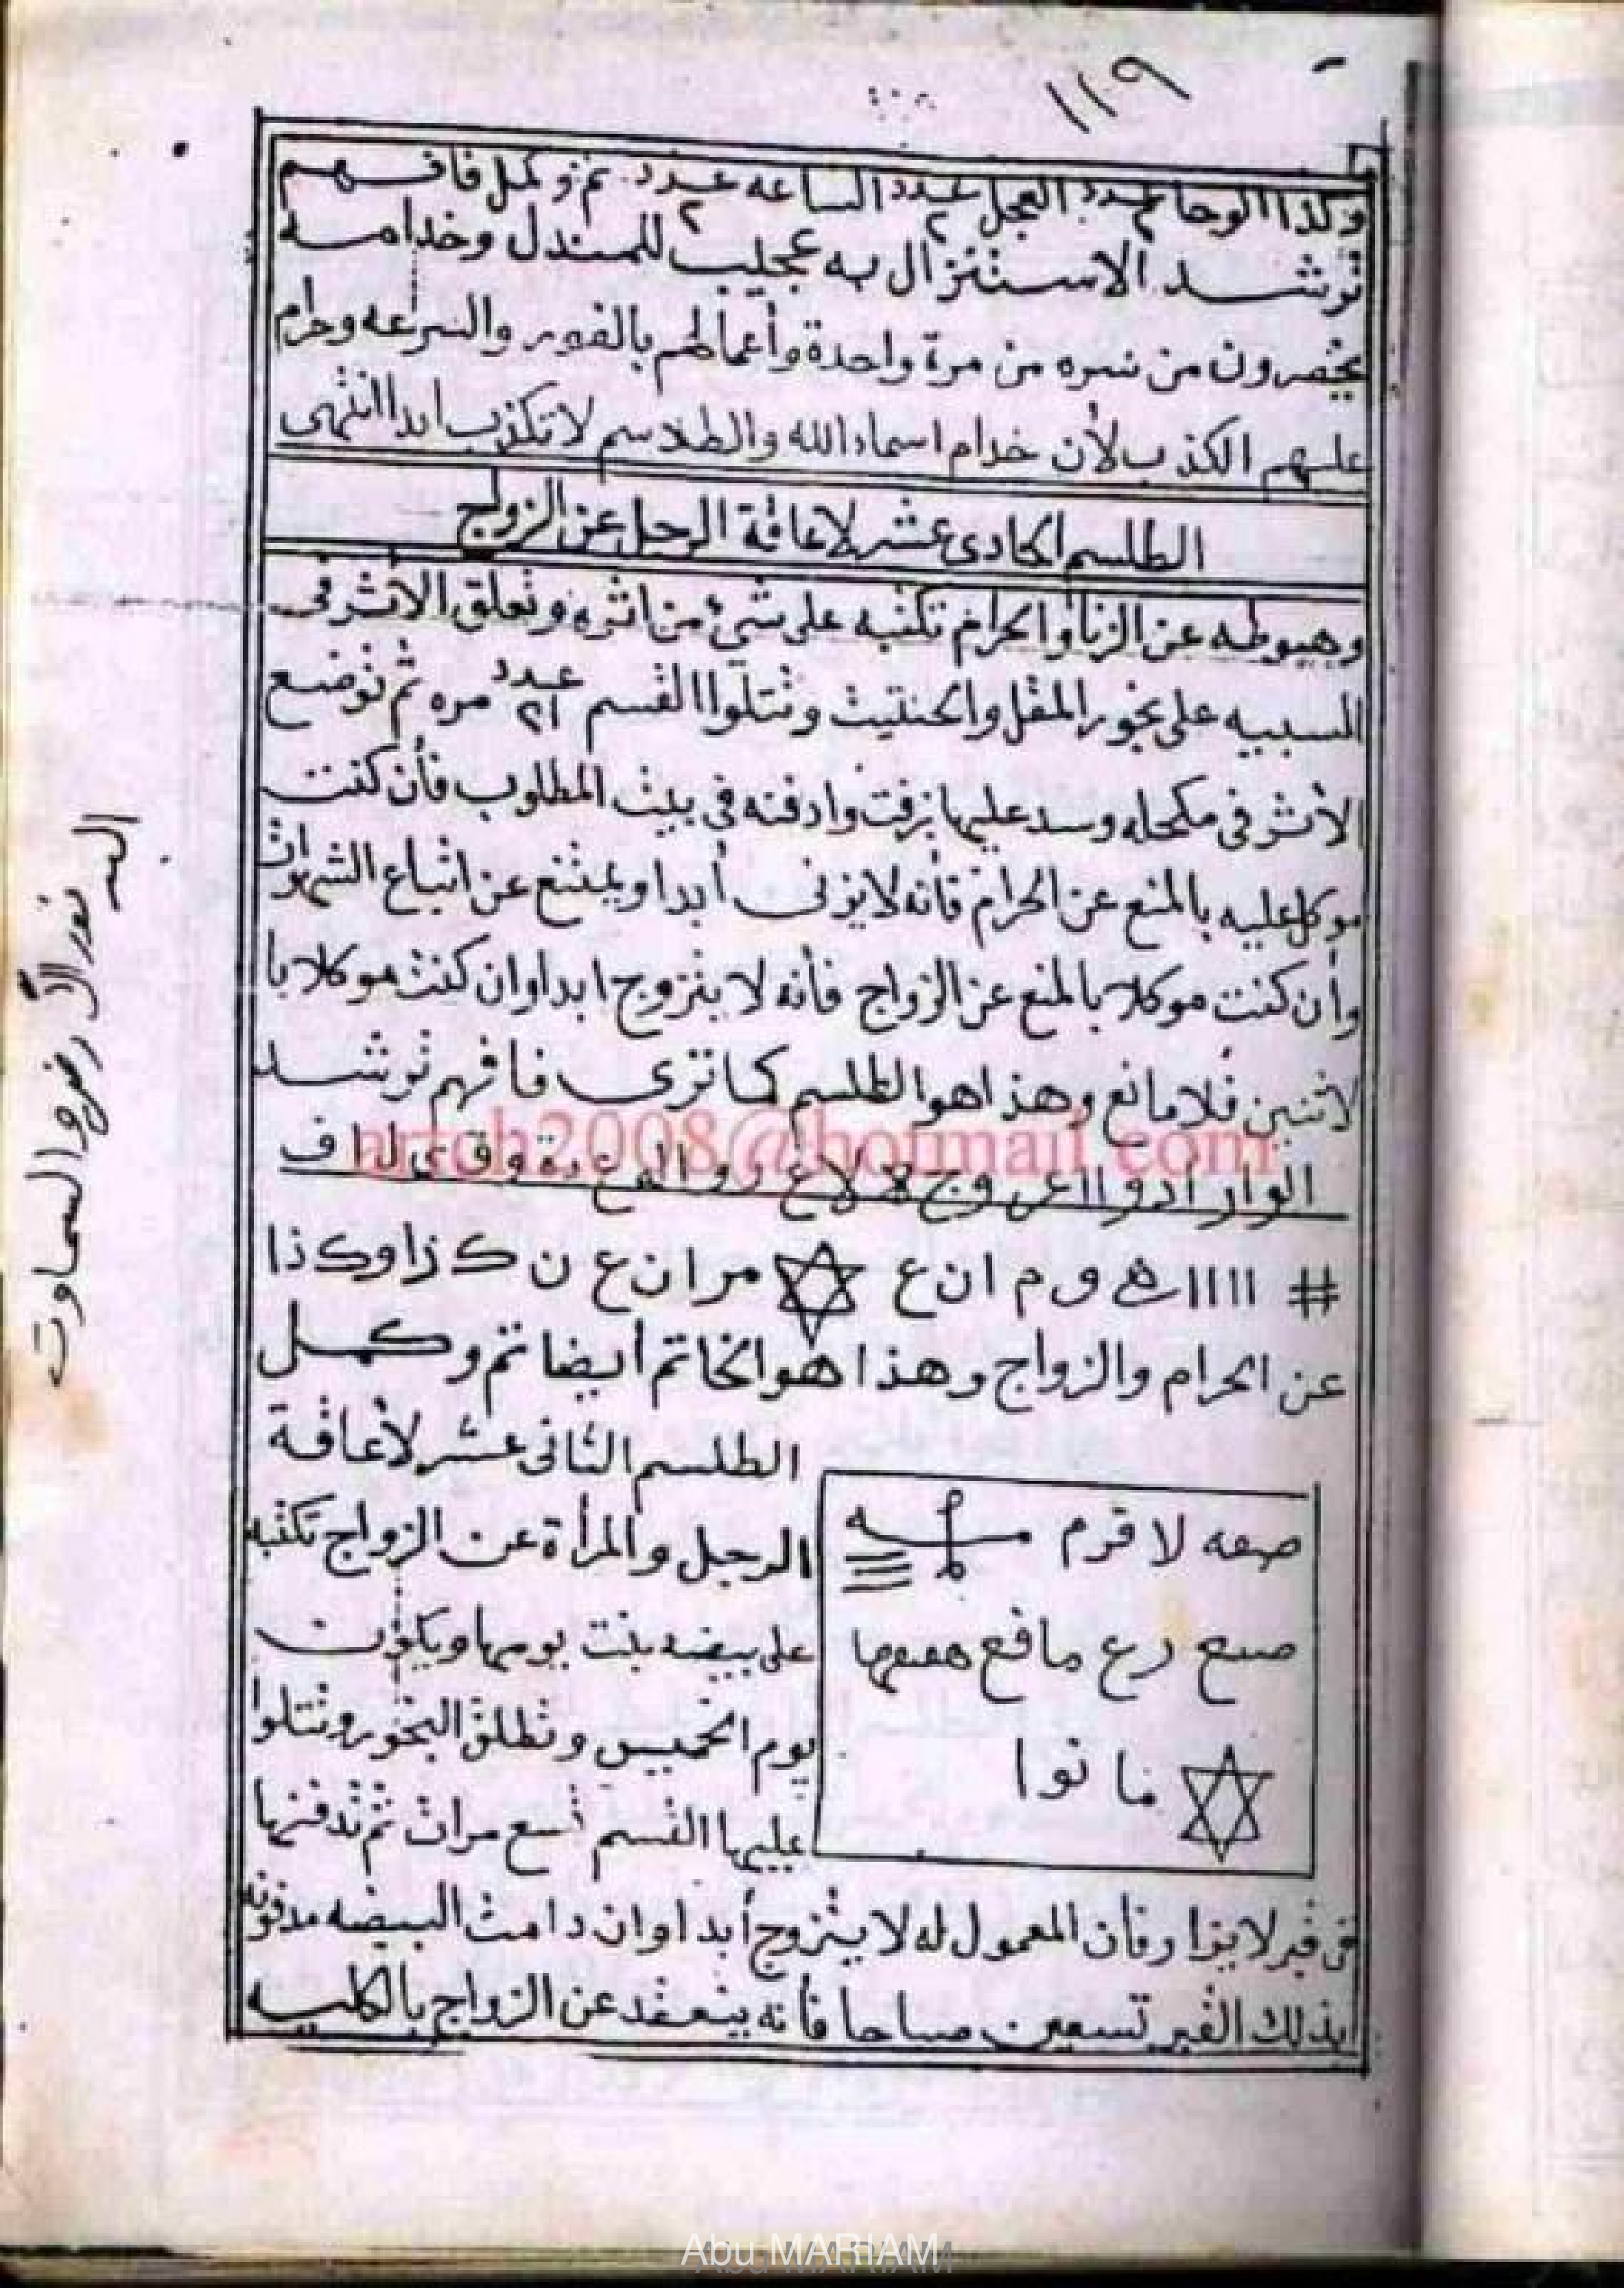 ١١٩
وكذا الوحا عدد ٢ العجل عدد ٢ الساعه عدد ٢ تم وكمل فافهم
ترشد الاستنزال به عجيب للمندل وخدامه
يحضرون من نسره من مرة واحدة وأعمالهم بالفور والسرعه وحرام
عليهم الكذب لأن خدام اسماء الله والطلاسم لا تكذب ابدا انتهى
الطلسم الحادى عشر لاعاقة الرجل عن الزواج
وهبوطه عن الزنا والحرام تكتبه على شئ من اثره وتعلق الأثر فى
السبيبه على بخور المقل والحنتيت وتتلوا القسم عدد ٢١ مره ثم توضع
الأثر فى مكحله وسد عليها بزفت وادفنه فى بيت المطلوب فأن كنت
موكل عليه بالمنع عن الحرام فأنه لا يزنى أبدا ويمتنع عن اتباع الشهوات
وأن كنت موكلا بالمنع عن الزواج فأنه لا يتزوج ابدا وان كنت موكلا با
لاثنين فلا مانع وهذا هو الطلسم كما ترى فافهم ترشد
artch2008@hotmail.com
# ١١١١ ه و م ان ع ✡ مر ان ع ن ك ذا وكذا
عن الحرام والزواج وهذا هو الخاتم أيضا تم وكمل
الطلسم الثانى عشر لأعاقة
الرجل والمرأة عن الزواج تكتبه
على بيضه بنت يومها ويكون
يوم الخميس وتطلق البخور وتتلوا
عليها القسم تسع مرات ثم تدفنها
صعه لا قرم
صع رع ما فع هعهها
✡ ما نوا
فى قبر لا يزار فأن المعمول له لا يتزوج أبدا وان دامت البيضه مدفونه
بذلك القبر تسعين صباحا فأنه ينعقد عن الزواج بالكليه
الله نور الأرض والسماوت
Abu MARIAM